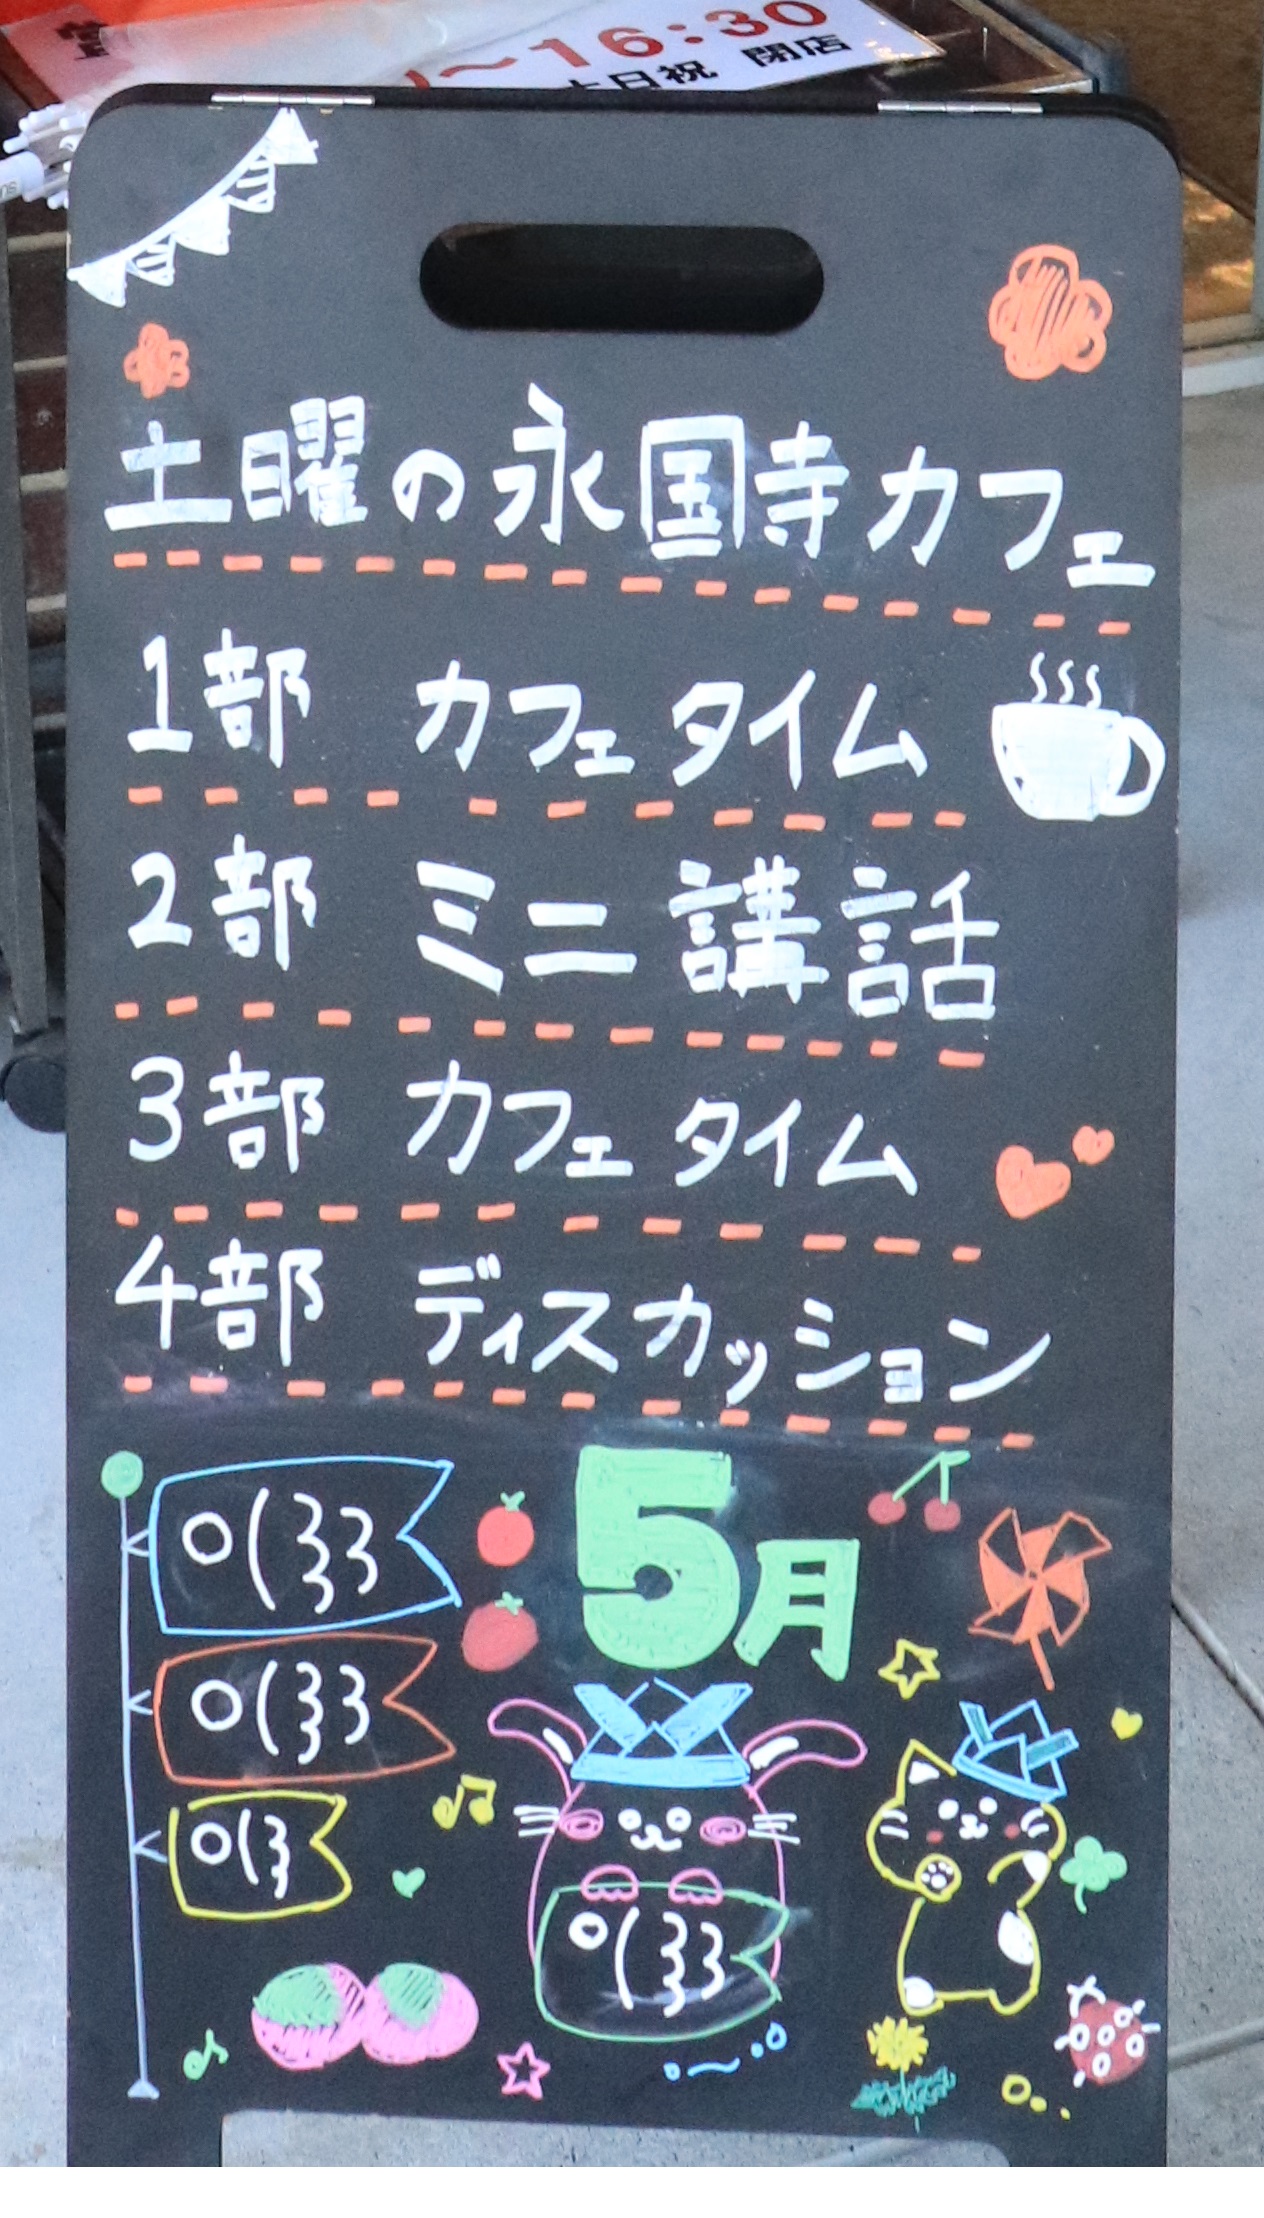 ～16:30
土日祝 閉店
土曜の永国寺カフェ
1部 カフェタイム
2部 ミニ講話
3部 カフェタイム
4部 ディスカッション
5月